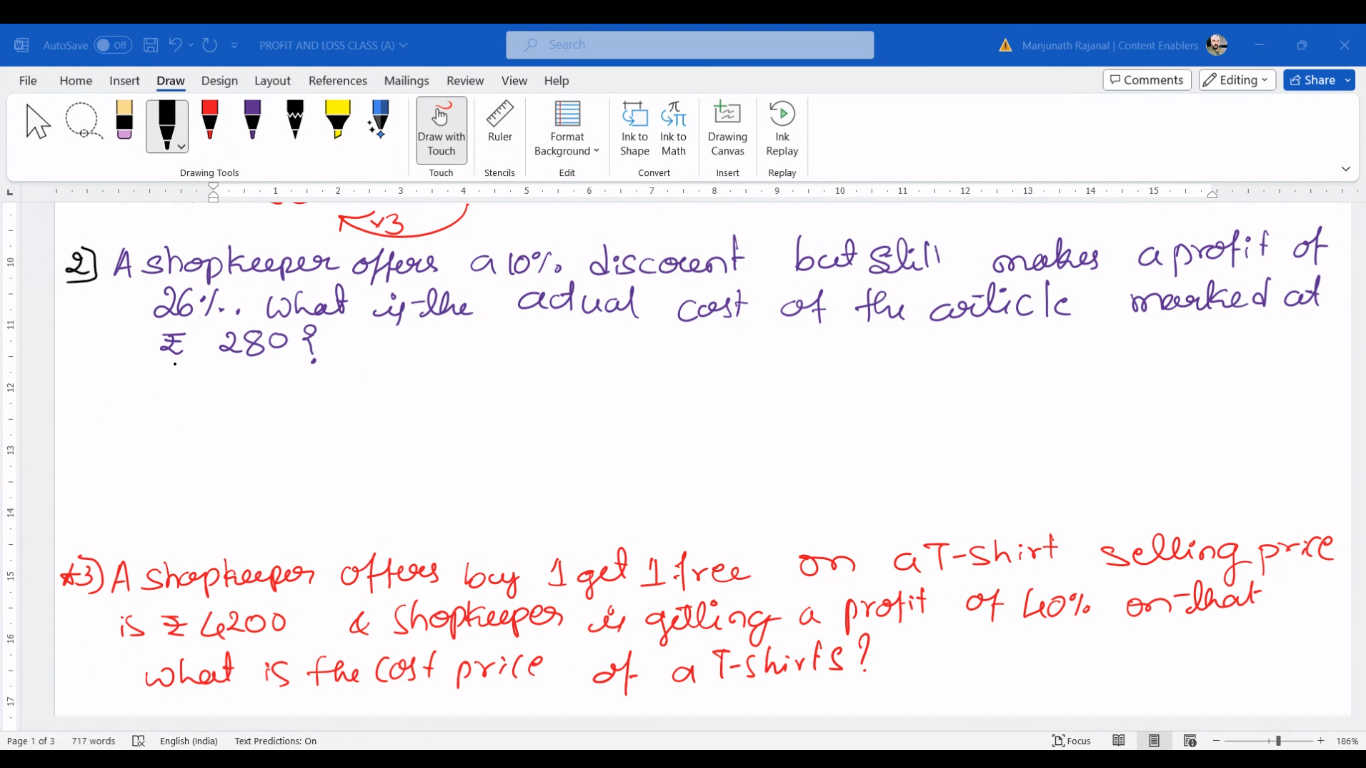 AutoSave Off PROFIT AND LOSS CLASS (A) Search Manjunath Rajanal | Content Enablers
File Home Insert Draw Design Layout References Mailings Review View Help Comments Editing Share
Draw with Touch Ruler Format Background Ink to Shape Ink to Math Drawing Canvas Ink Replay
Drawing Tools Touch Stencils Edit Convert Insert Replay
1 2 3 4 5 6 7 8 9 10 11 12 13 14 15
×3
2) A shopkeeper offers a 10% discount but still makes a profit of
26%. What is the actual cost of the article marked at
₹ 280?
*3) A shopkeeper offers buy 1 get 1 free on a T-shirt selling price
is ₹ 4200 & shopkeeper is getting a profit of 40% on that
what is the cost price of a T-shirts?
10
11
12
13
14
15
16
17
Page 1 of 3 717 words English (India) Text Predictions: On Focus 186%